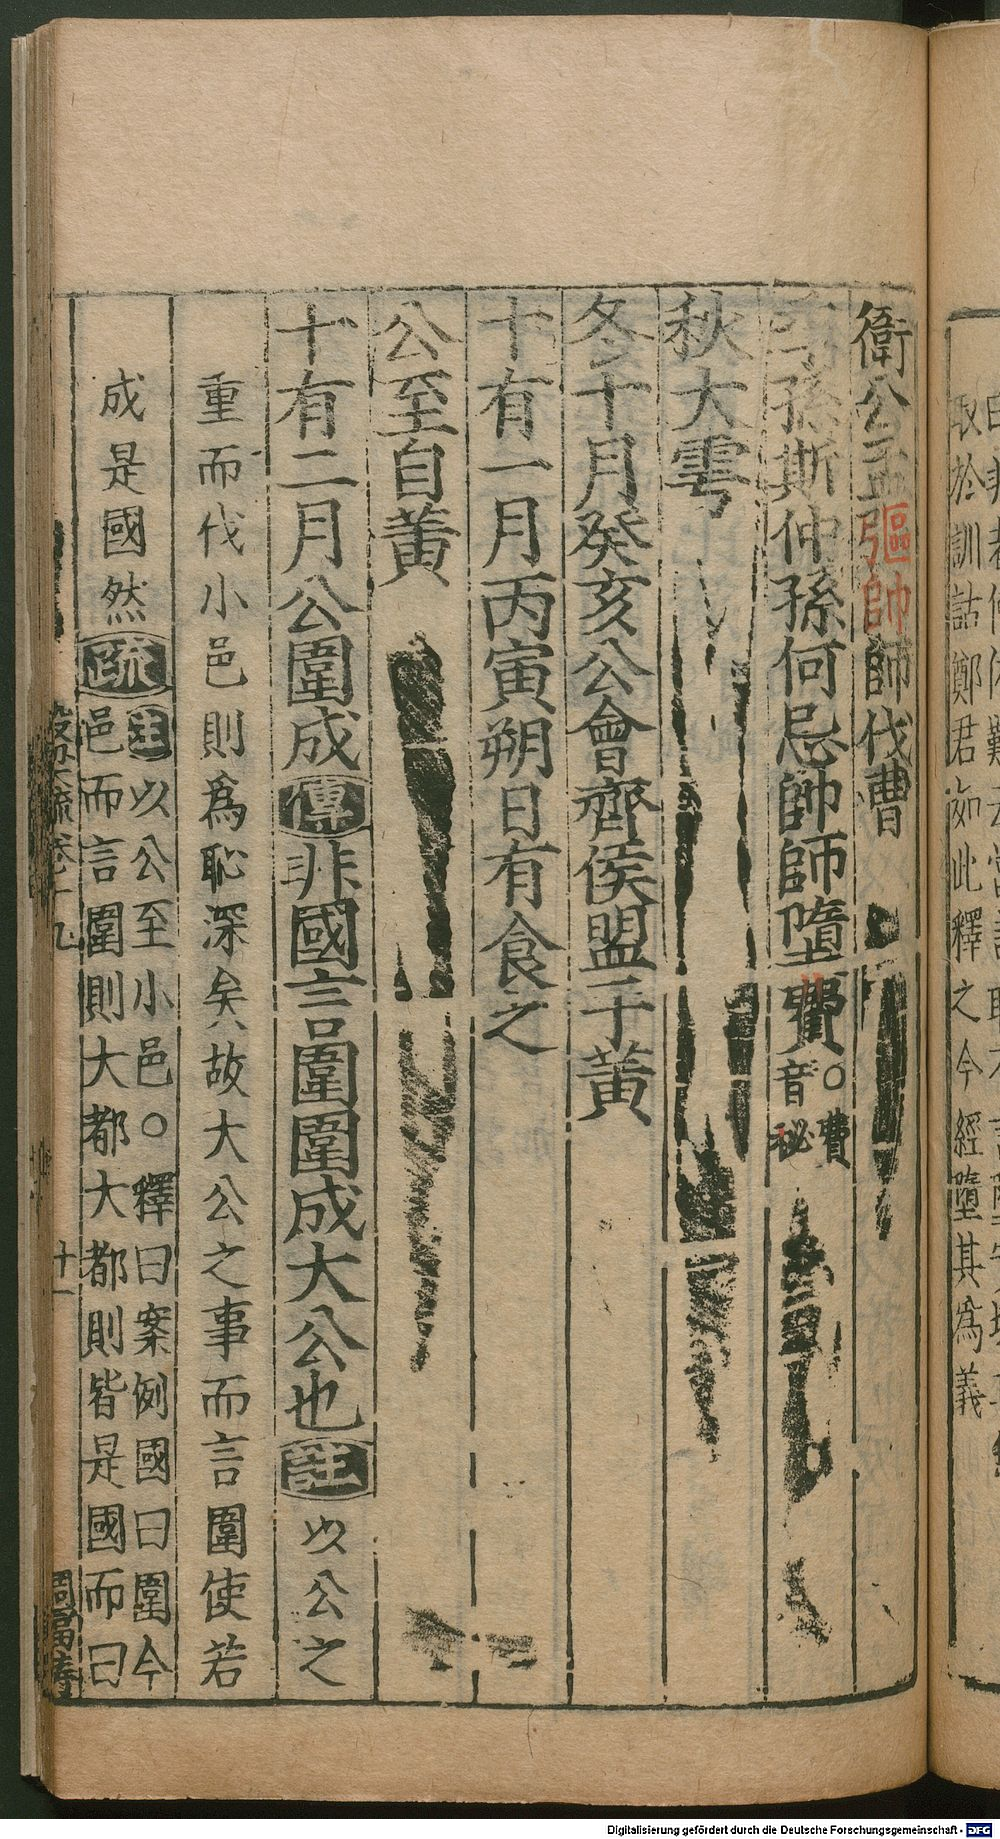 取於訓詁鄭君如此釋之今經墮其為義
衛公孟彄帥師伐曹
季孫斯仲孫何忌帥師墮費○費音秘
秋大雩
冬十月癸亥公會齊侯盟于黃
十有一月丙寅朔日有食之
公至自黃
十有二月公圍成傳非國言圍圍成大公也註以公之
重而伐小邑則爲恥深矣故大公之事而言圍使若
成是國然疏註以公至小邑○釋曰案例國曰圍今
邑而言圍則大都大都則皆是國而曰
疏卷十九 十一
Digitalisierung gefördert durch die Deutsche Forschungsgemeinschaft - DFG